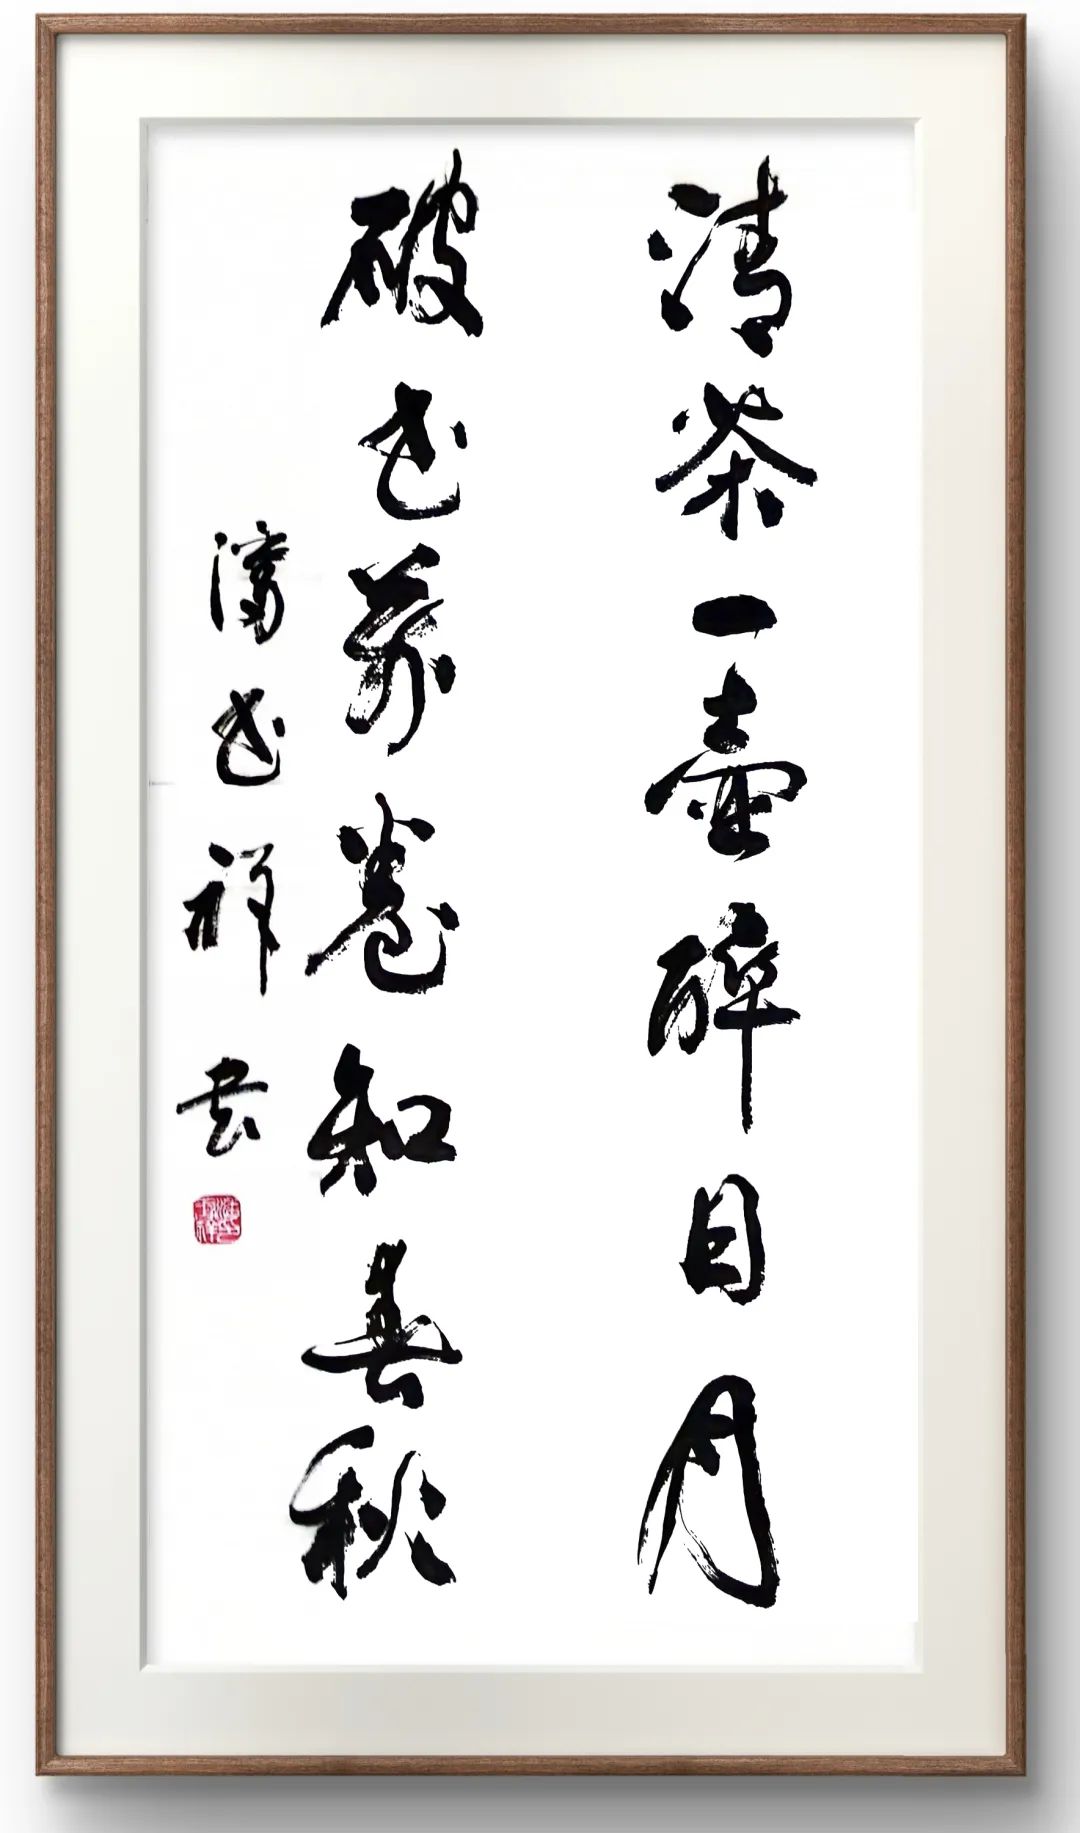 清茶一壶醉日月
破书万卷知春秋
祥书